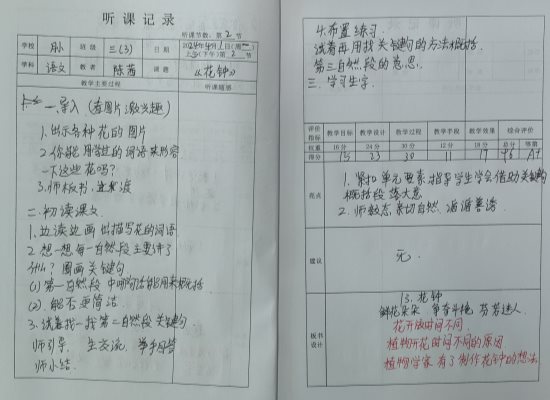 听课记录
听课节数：第2节
学校 附小 班级 三(3) 日期 2024年4月1日(周一)
上午(下午)第2节
学科 语文 教者 陈茜 课题 《花钟》
教学主要过程 听课随感
一、导入（看图片，激兴趣）
1.出示各种花的图片
2.你能用学过的词语来形容
一下这些花吗？
3.师板书，过渡
二、初读课文
1.边读边画出描写花的词语
2.想一想每一自然段主要讲了
什么？圈画关键句
(1)第一自然段中哪句话能用来概括
(2)能否更简洁
3.试着找一找第二自然段关键句
师引导 生交流 举手回答
师小结
4.布置练习
试着再用找关键句的方法概括
第三自然段的意思
三、学习生字
评价指标 教学目标 教学设计 教学过程 教学手段 教学效果 综合评价
权重 16分 24分 30分 12分 18分 总分 等第
得分 15 23 30 11 17 96 A+
亮点
1.紧扣单元要素，指导学生学会借助关键句
概括段落大意
2.师教态亲切自然，循循善诱
建议
无
板书设计
13.花钟
鲜花朵朵 争奇斗艳 芬芳迷人
花开放时间不同
植物开花时间不同的原因
植物学家有了制作花钟的想法